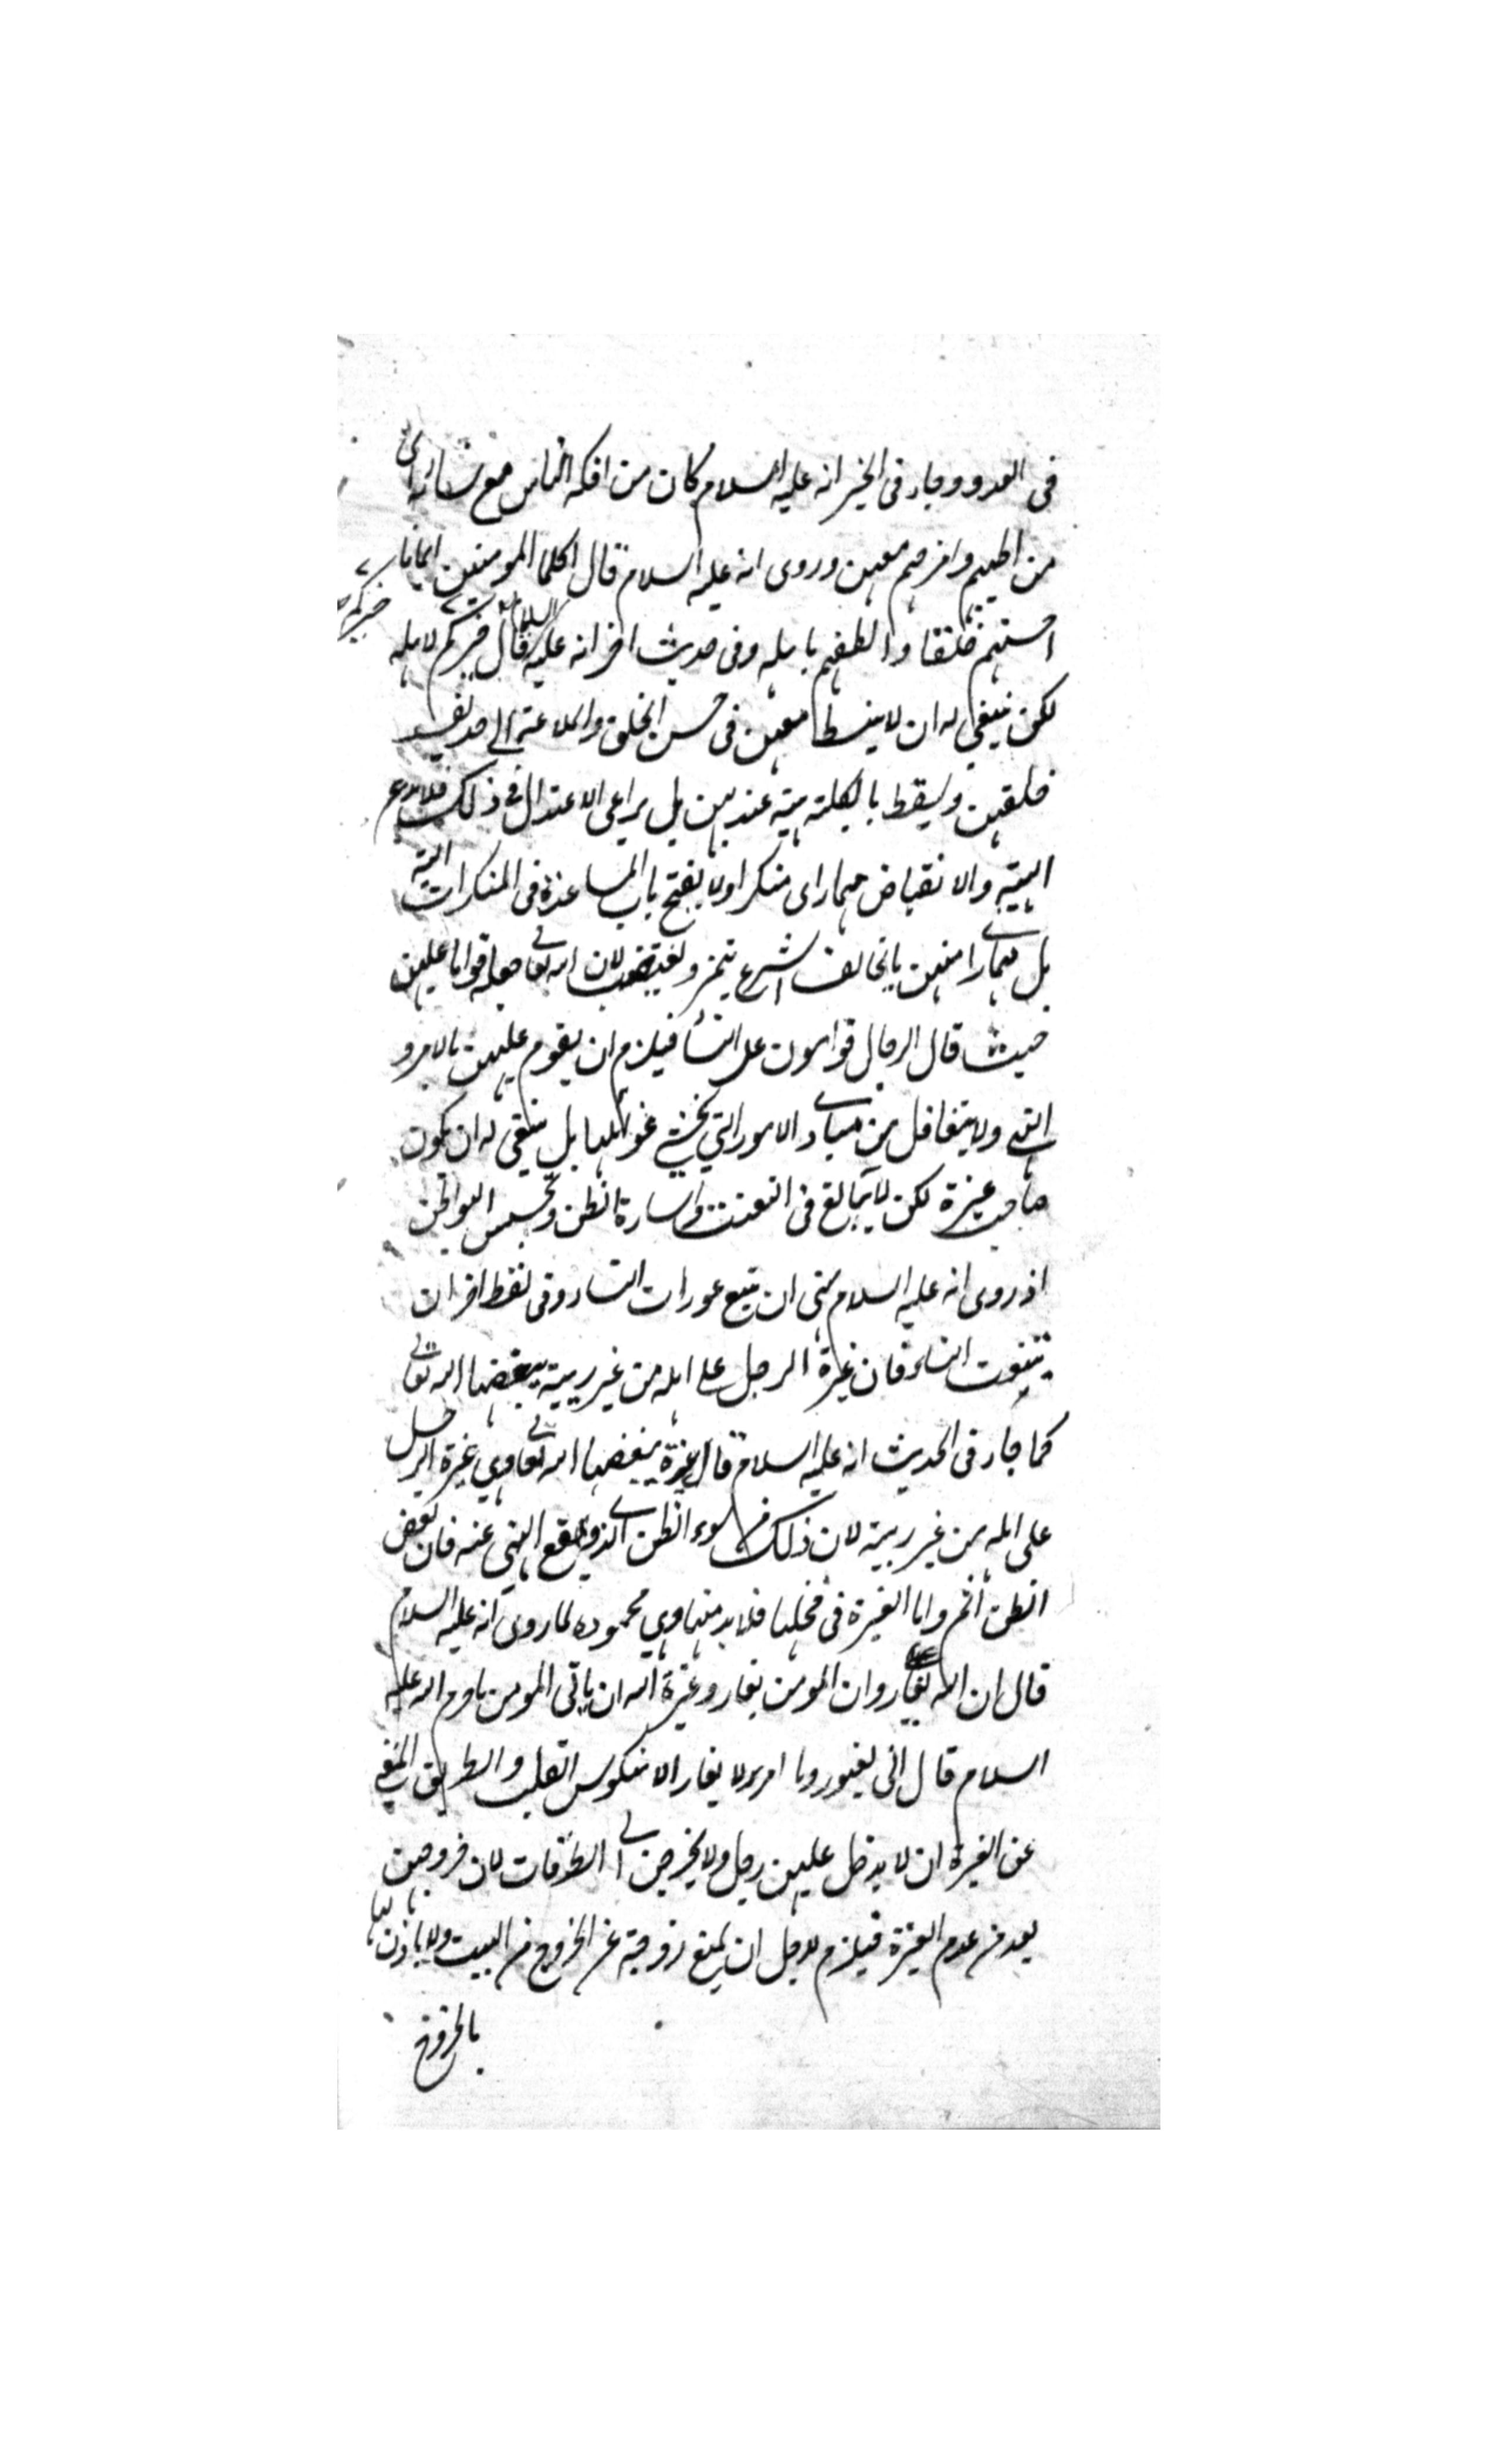 في العدو وجاء في الخبر انه عليه السلام كان من افكه الناس مع نسائه اى
من اطيبهم وامزحهم معهن وروى انه عليه السلام قال اكمل المومنين ايمانا
احسنهم خلقا والطفهم باهله وفي حديث اخر انه عليه السلام قال خيركم لاهله
خيركم
لكن ينبغي له ان لا ينبسط معهن في حسن الخلق والملاعبة الى حد يفسد
خلقهن ويسقط بالكلية هيبته عندهن بل يراعى الاعتدال في ذلك فلا يدع
الهيبة والانقباض مهما راى منكرا ولا يفتح باب المساعدة في المنكرات البتة
بل مهما راى منهن ما يخالف الشرع يتنمر ويغضب لان الله تعالى جعله قواما عليهن
حيث قال الرجال قوامون على النساء فيلزم ان يقوم عليهن بالامر و
النهى ولا يتغافل من مبادى الامور التي يخشى غوائلها بل ينبغي له ان يكون
صاحب غيرة لكن لا يبالغ في التعنت واساءة الظن وتجسس البواطن
اذ روى انه عليه السلام نهى ان تتبع عورات النساء وفي لفظ اخر ان
تبغت النساء فان غيرة الرجل على اهله من غير ريبة يبغضها الله تعالى
كما جاء في الحديث انه عليه السلام قال غيرة يبغضها الله تعالى وهي غيرة الرجل
على اهله من غير ريبة لان ذلك من سوء الظن الذى وقع النهى عنه فان بعض
الظن اثم واما الغيرة في محلها فلا بد منها وهي محمودة لما روى انه عليه السلام
قال ان الله تعالى يغار وان المومن يغار وغيرة الله ان ياتى المومن ما حرم الله عليه
السلام قال انى لغيور وما امرء لا يغار الا منكوس القلب والطريق المغنى
عن الغيرة ان لا يدخل عليهن رجل ولا يخرجن الى الطرقات لان خروجهن
يعد من عدم الغيرة فيلزم للرجل ان يمنع زوجته عن الخروج من البيت ولا ياذن لها
بالخروج